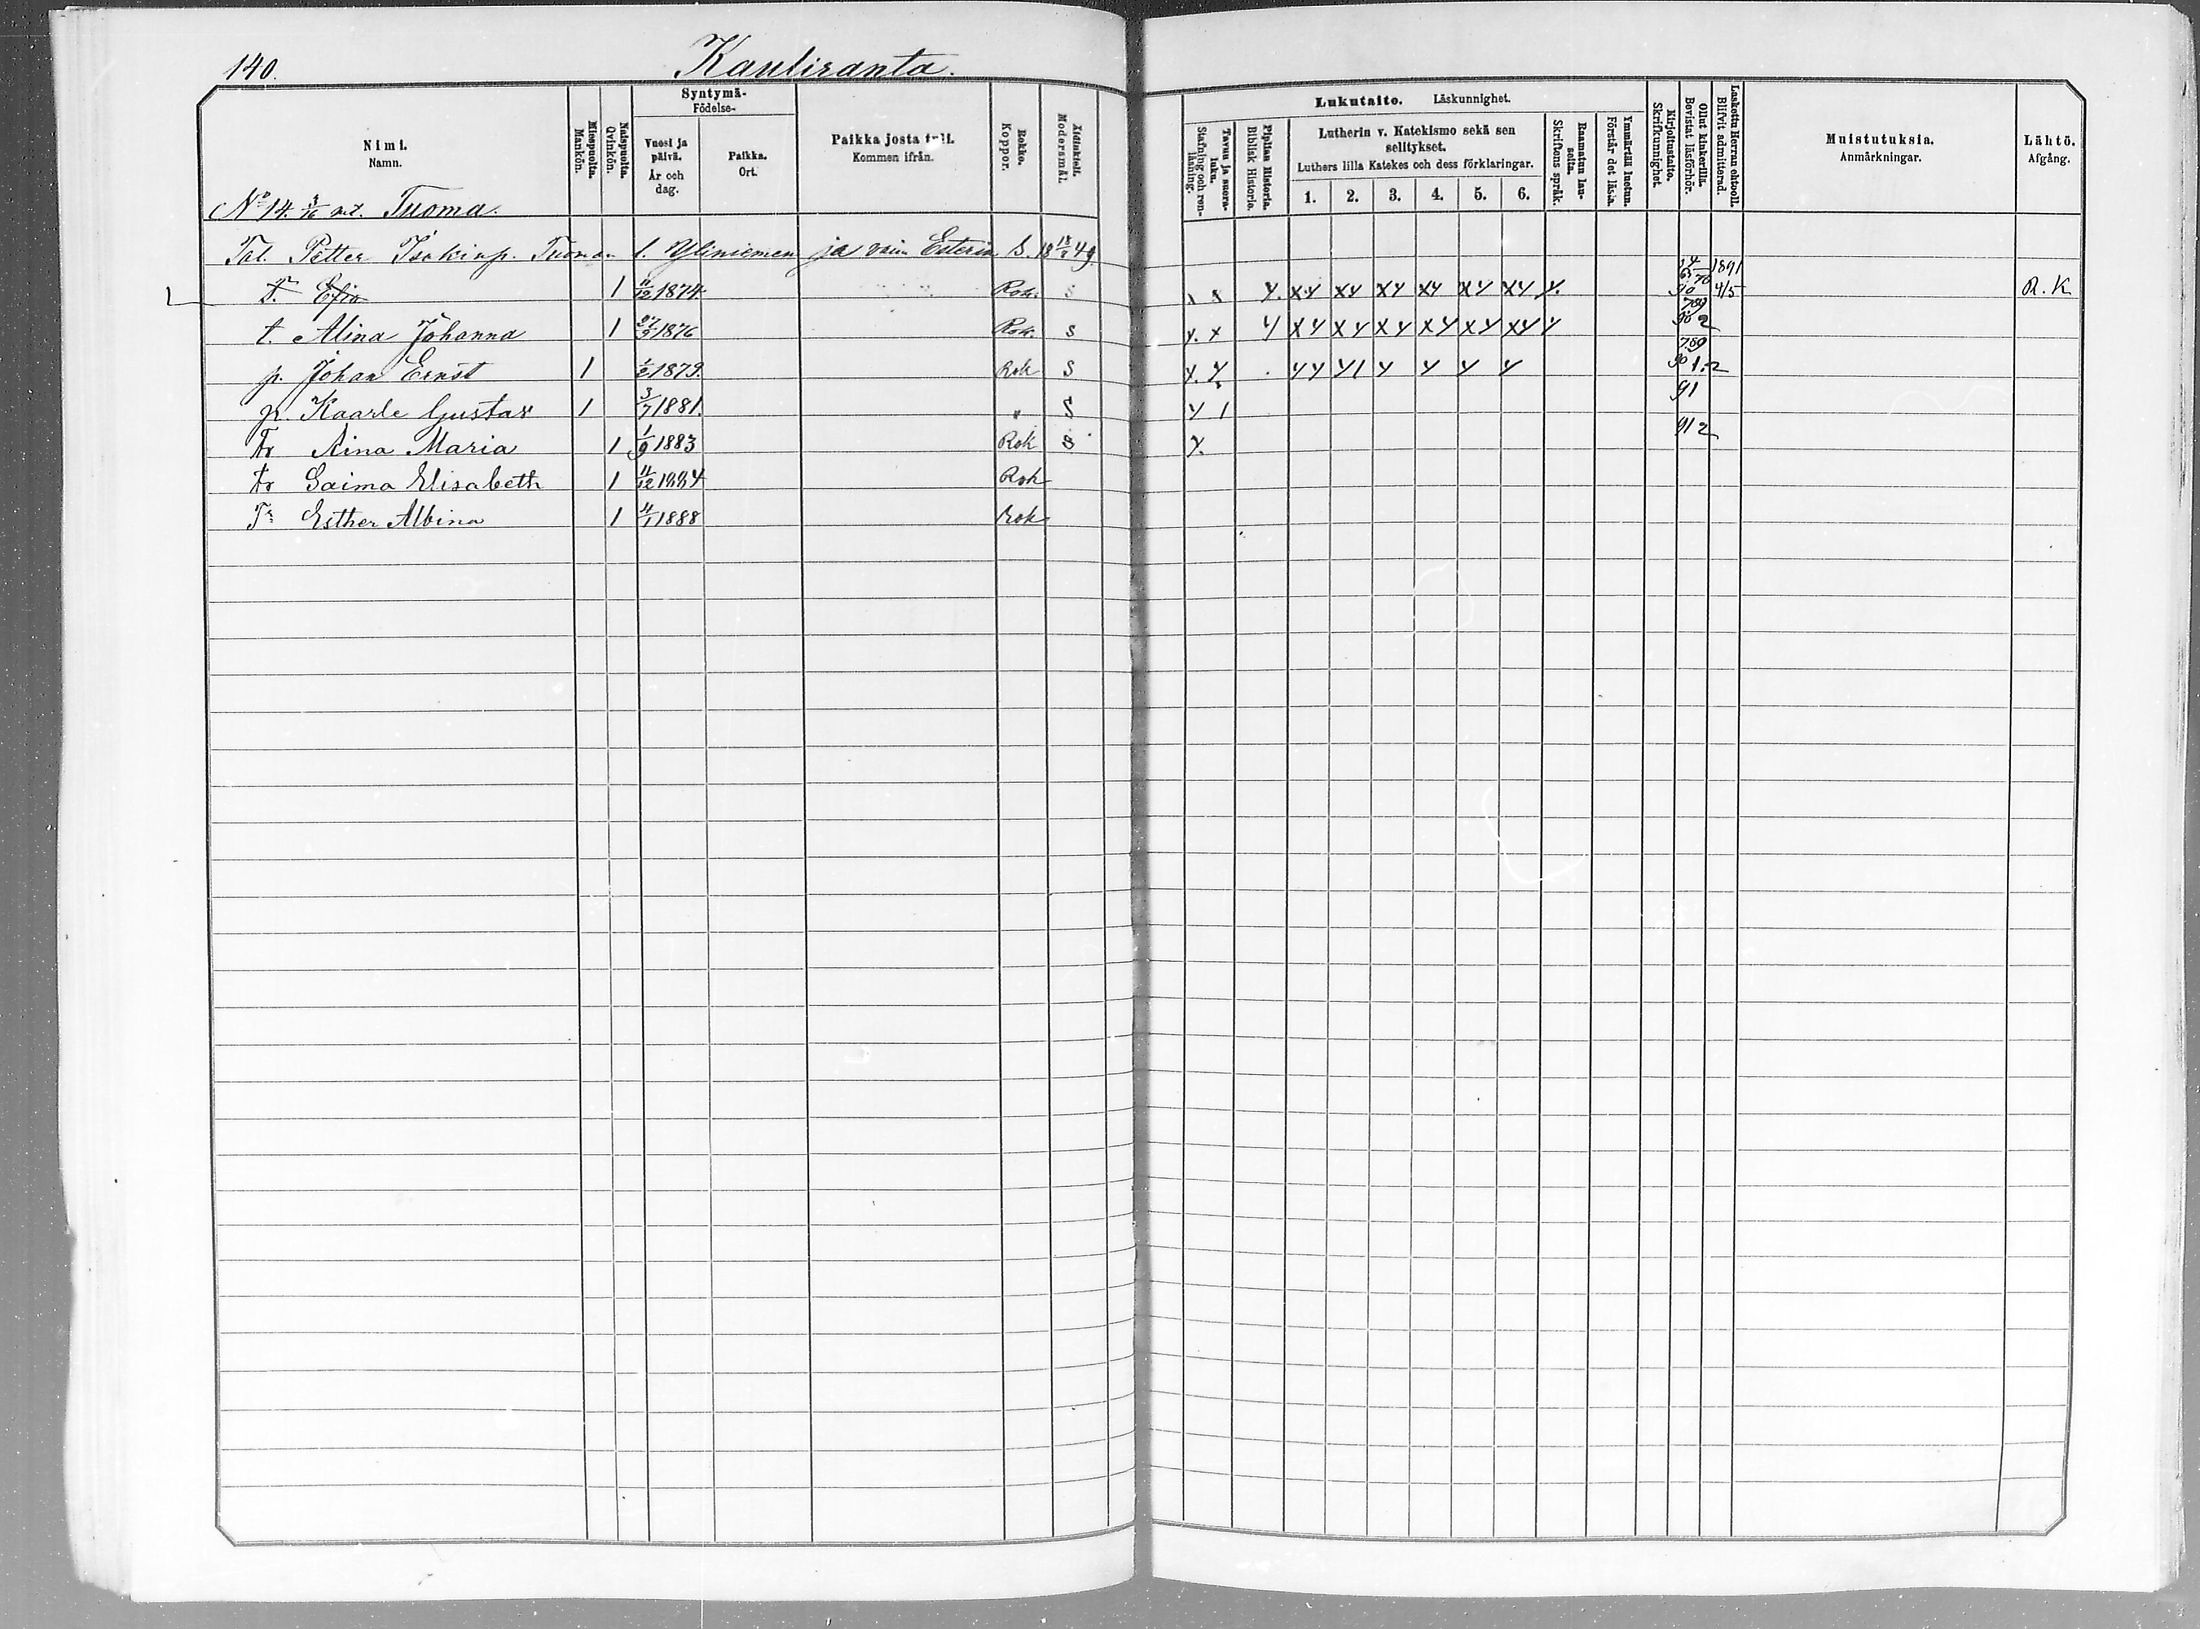 140. Kauliranta.
Nimi. Namn.
Miespuolia. Mankön.
Naispuolia. Qvinkön.
Syntymä- Födelse-
Vuosi ja päivä. År och dag.
Paikka. Ort.
Paikka josta tuli. Kommen ifrån.
Rokko. Koppor.
Äidinkieli. Modersmål.
Lukutaito. Läskunnighet.
Tavuu ja suora-luku. Stafning och ren-läsning.
Piplian Historia. Biblisk Historia.
Lutherin v. Katekismo sekä sen selitykset.
Luthers lilla Katekes och dess förklaringar.
1. 2. 3. 4. 5. 6.
Raamatun lau-seita. Skriftens språk.
Ymmärtää luetun. Förstår det lästa.
Kirjoitustaito. Skrifkunnighet.
Ollut kinkerillä. Bevistat läsförhör.
Laskettu Herran ehtool. Blifvit admitterad.
Muistutuksia. Anmärkningar.
Lähtö. Afgång.
No 14. 3/16 mt. Tuoma.
Tal. Petter Isakinp. Tuoman l. Yliniemen ja vaim Esterin S. 18 18/3 49
T. Efia 1 11/12 1874 Rok. S x x y. xy xy xy xy xy xy y. 90 1891 4/5 R. K
t. Alina Johanna 1 27/9 1876 Rok. S y. x y xy xy xy xy xy xy y 789 90 2
p. Johan Ernst 1 1/6 1879. Rok S y. y yy y1 y y y y 789 90 1.2
p. Kaarle Gustav 1 3/7 1881. " S y 1 91
Tr Aina Maria 1 1/9 1883 Rok S y. 91 2
tr Saima Elisabeth 1 11/12 1884 Rok
Tr Esther Albina 1 4/1 1888 Rok